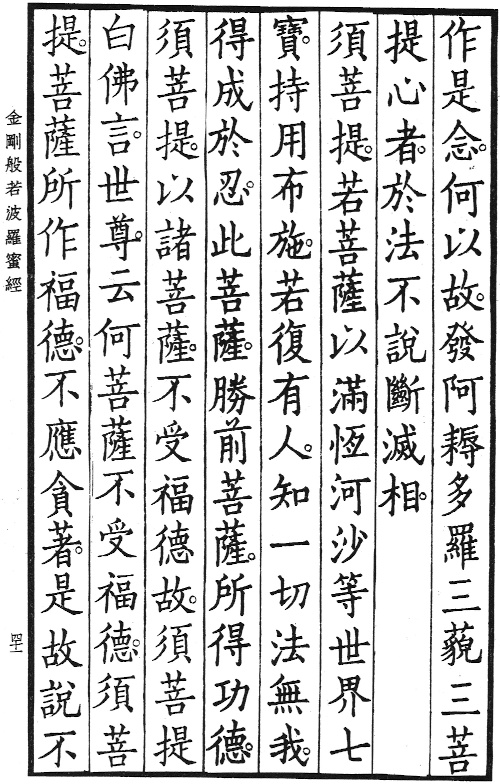 作是念。何以故。發阿耨多羅三藐三菩
提心者。於法不說斷滅相。
須菩提。若菩薩以滿恆河沙等世界七
寶。持用布施。若復有人。知一切法無我。
得成於忍。此菩薩。勝前菩薩。所得功德。
須菩提。以諸菩薩。不受福德故。須菩提
白佛言。世尊。云何菩薩不受福德。須菩
提。菩薩所作福德。不應貪著。是故說不
金剛般若波羅蜜經
四十一